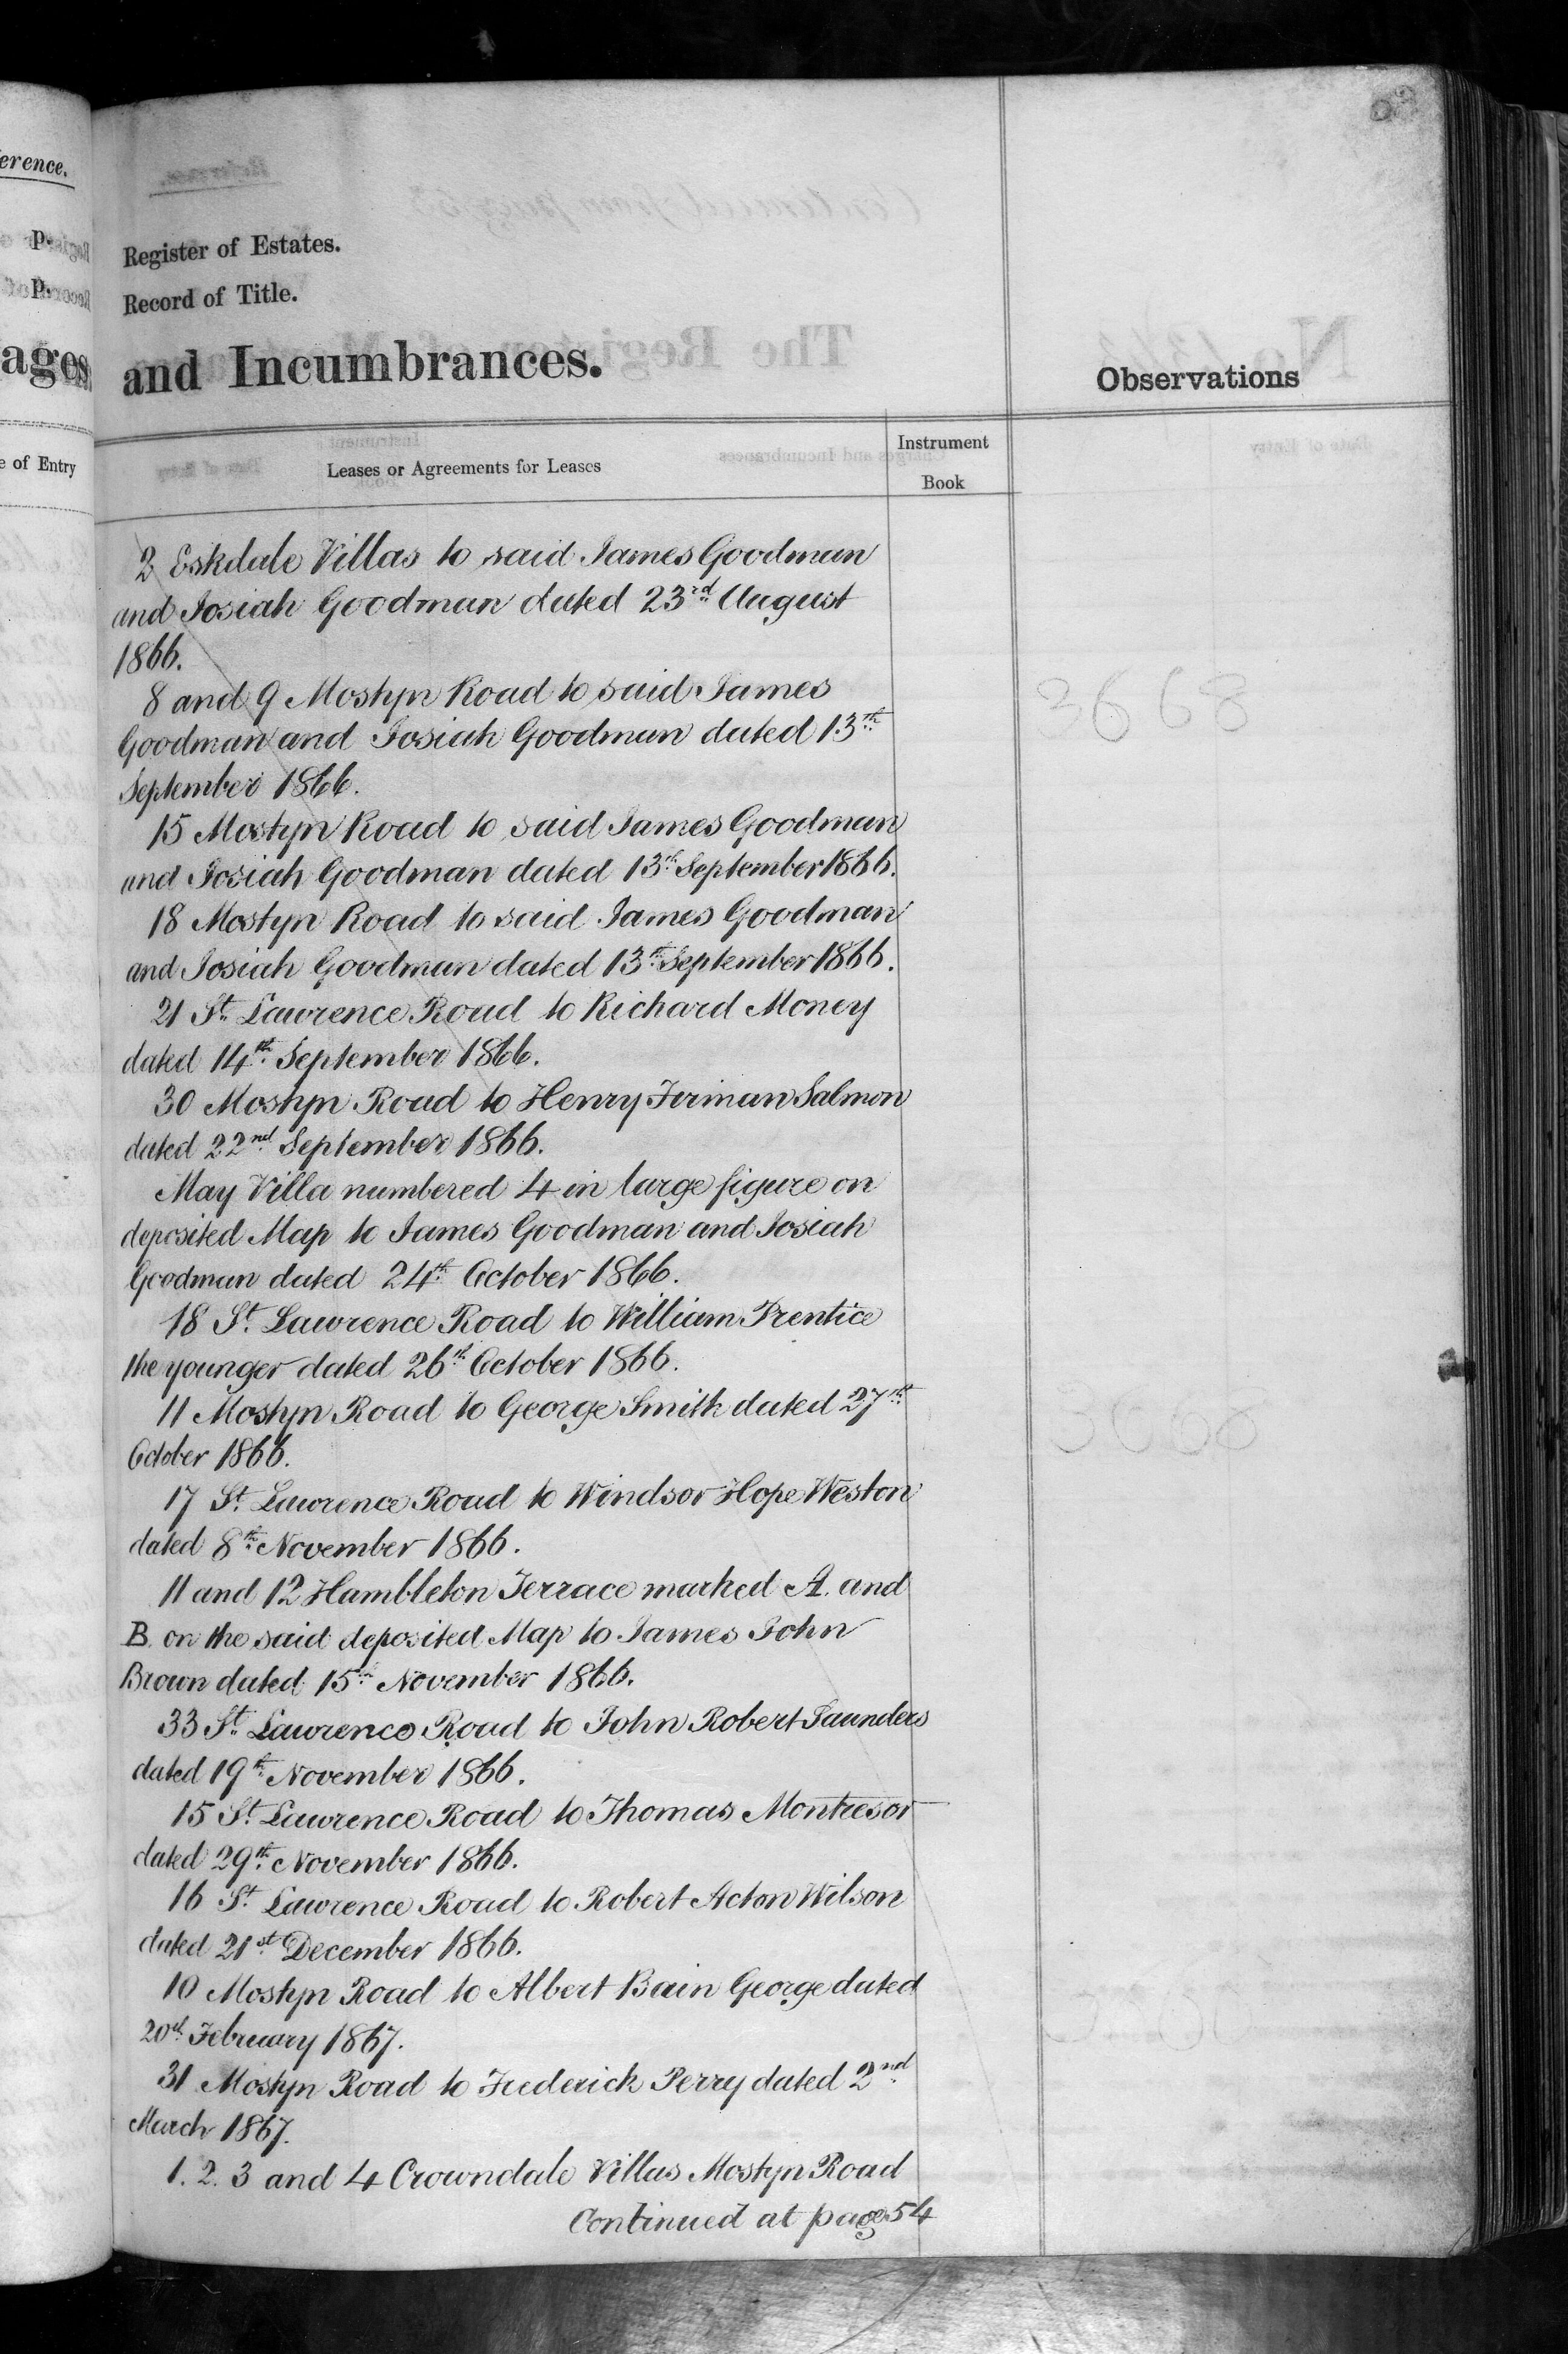 erence.
p.
p.
ages
e of Entry
Register of Estates.
Record of Title.
and Incumbrances.
Observations
Leases or Agreements for Leases
Instrument
Book
2 Eskdale Villas to said James Goodman
and Josiah Goodman dated 23rd August
1866.
8 and 9 Mostyn Road to said James
Goodman and Josiah Goodman dated 13th
September 1866.
15 Mostyn Road to said James Goodman
and Josiah Goodman dated 13th September 1866.
18 Mostyn Road to said James Goodman
and Josiah Goodman dated 13th September 1866.
21 St. Lawrence Road to Richard Money
dated 14th September 1866.
30 Mostyn Road to Henry Firman Salmon
dated 22nd September 1866.
May Villa numbered 4 in large figure on
deposited Map to James Goodman and Josiah
Goodman dated 24th October 1866.
18 St. Lawrence Road to William Prentice
the younger dated 26th October 1866.
11 Mostyn Road to George Smith dated 27th
October 1866.
17 St. Lawrence Road to Windsor Hope Weston
dated 8th November 1866.
11 and 12 Hambleton Terrace marked A. and
B. on the said deposited Map to James John
Brown dated 15th November 1866.
33 St. Lawrence Road to John Robert Saunders
dated 19th November 1866.
15 St. Lawrence Road to Thomas Montresor
dated 29th November 1866.
16 St. Lawrence Road to Robert Acton Wilson
dated 21st December 1866.
10 Mostyn Road to Albert Bain George dated
20th February 1867.
31 Mostyn Road to Frederick Perry dated 2nd
March 1867.
1. 2. 3 and 4 Crowndale Villas Mostyn Road
Continued at page 54
3668